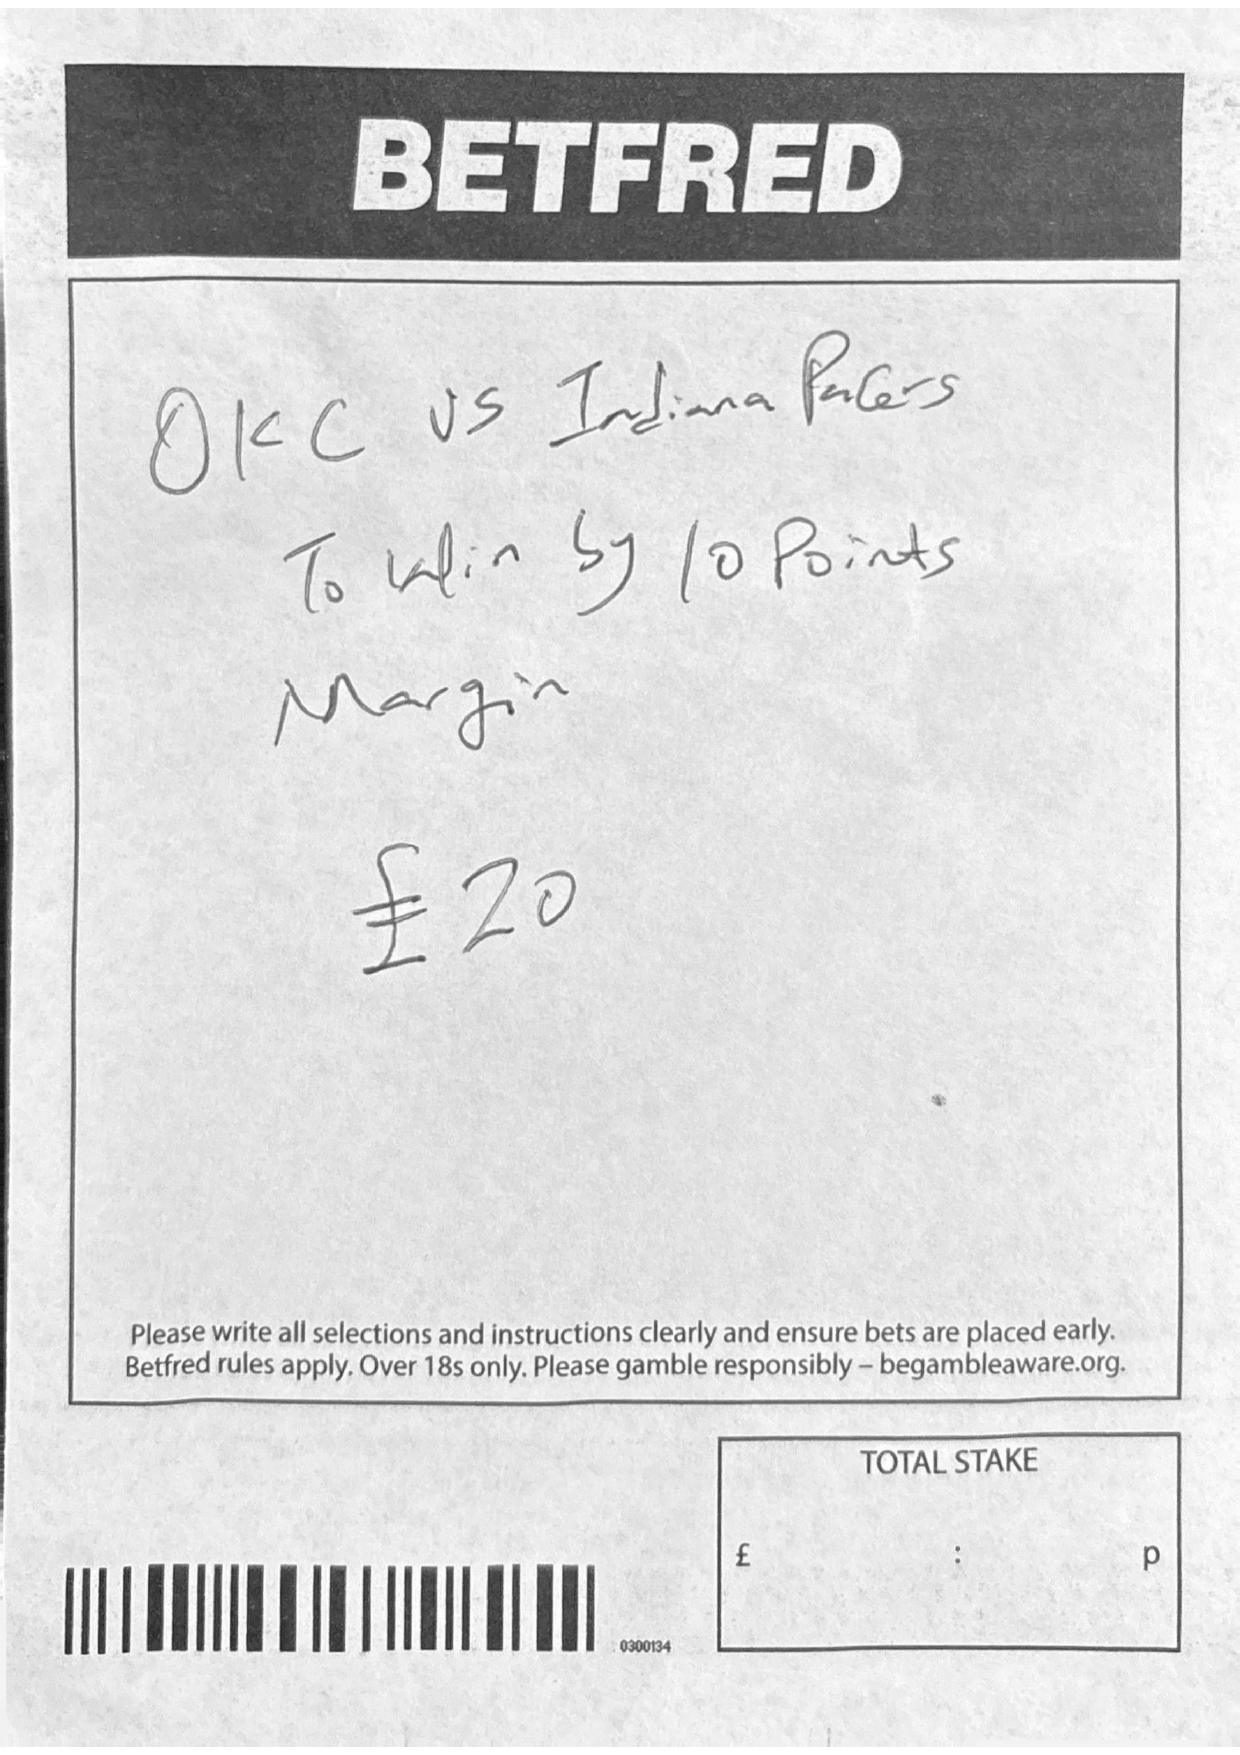 BETFRED
OKC vs Indiana Pacers
To Win by 10 Points
Margin
£20
Please write all selections and instructions clearly and ensure bets are placed early.
Betfred rules apply. Over 18s only. Please gamble responsibly – begambleaware.org.
TOTAL STAKE
£ : p
0300134